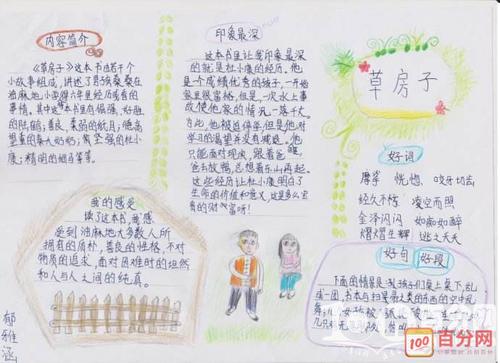 内容简介
《草房子》这本书由若干个
小故事组成，讲述了男孩桑桑在
油麻地小学度过六年里经历或看的
事情。其中这本书里有倔强、好胜
的陆鹤；善良、柔弱的纸月；
望重的秦大奶奶；坚强的杜小
康；精明的细马等等。
印象最深
这本书里让我印象最深
的就是杜小康的经历。他
是个成绩优秀的孩子，一开始
家里很富裕，但是，一次水上事
故使他家的情况一落千丈。
为此，他被迫停学，但是他对
学习的渴望并没有减退。他
只能面对现实，跟着爸
爸去放鸭，总想着东山再起。
这些经历让杜小康明白了
生命的价值和意义，这是多么宝
贵的财富呀！
草房子
好词
摩挲 恍惚 咬牙切齿
经久不倦 凌空而照
金泽闪闪 如痴如醉
熠熠生辉 逃之夭夭
我的感受
读了这本书，我感
受到油麻地大多数人所
拥有的质朴，善良的性格，不对
物质的追求，面对困难时的坦然
和人与人之间的纯真。
好句 好段
下面的情景是：孩子们桌上桌下，乱
作一团，书本与扫帚之类的东西在空中乱
郁雅涵
100 百分网